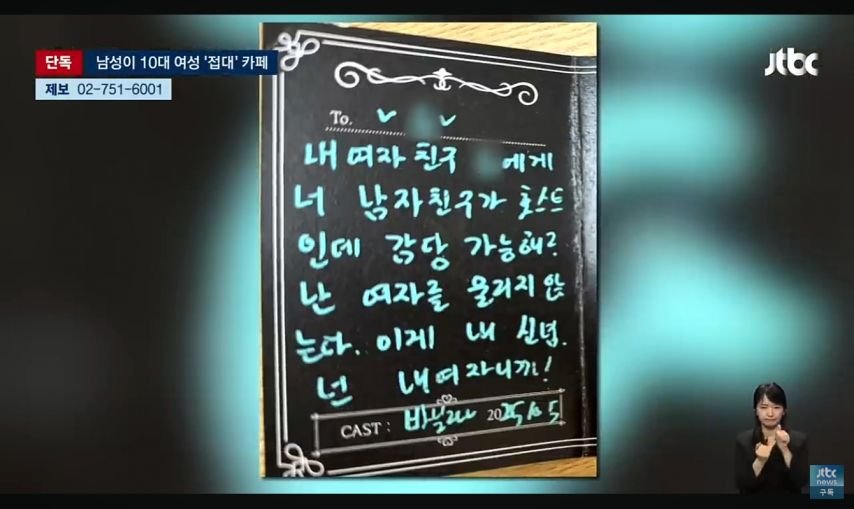 단독 남성이 10대 여성 '접대' 카페
jtbc
제보 02-751-6001
To.
내 여자친구 에게
너 남자친구가 호스트
인데 감당 가능해?
난 여자를 울리지 않
는다. 이게 내 신념.
넌 내여자니까!
CAST : 바닐라 2025 10 5
jtbc
news
구독